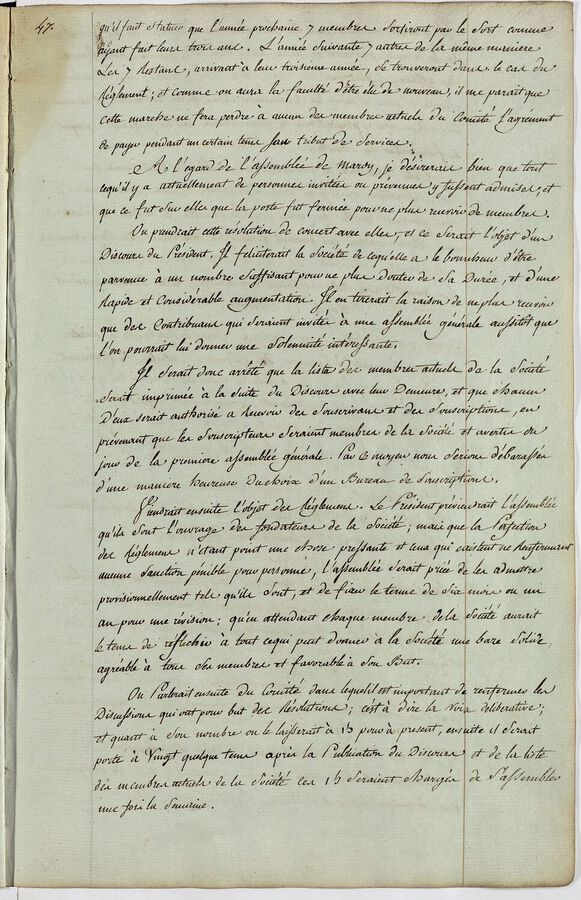 47.
qu'il faut statuer que l'année prochaine 7 membres sortiront par le sort comme
ayant fait leurs trois ans. L'année suivante 7 autres de la même manière
Les 7 restans, arrivant à leur troisieme année, se trouveront dans le cas du
Réglement; et comme on aura la faculté d'être élu de nouveau, il me parait que
cette marche ne fera perdre à aucun des membres actuels du Comité l'agrement
de payer pendant un certain tems son tribut de Services.
A l'égard de l'assemblée de mardy, je désirerais bien que tout
cequ'il y a actuellement de personnes invitées ou prévenues y fussent admises, et
que ce fut sur elles que la porte fut fermée pour ne plus recevoir de membres.
On prendrait cette résolution de concert avec elles, et ce serait l'objet d'un
Discours du Président. Il féliciterait la Société de cequ'elle a le bonheur d'être
parvenue à un nombre suffisant pour ne plus douter de Sa Durée, et d'une
Rapide et Considérable augmentation. Il en tirerait la raison de ne plus recevoir
que des Contribuans qui seraient invités à une assemblée générale aussitôt que
l'on pourrait lui donner une Solemnité intéressante.
Il serait donc arrêté que la liste des membres actuels de la Société
serait imprimée à la suite du Discours avec leur Demeure, et que chacun
D'eux serait authorisé a recevoir des Souscrivans et des Souscriptions, en
prévenant que les Souscripteurs seraient membres de la Société et avertis du
jour de la premiere assemblée générale. Par ce moyen nous serions débarassés
d'une maniere heureuse Du choix d'un Bureau de Souscriptions.
Viendrait ensuite l'objet des Réglemens. Le Président préviendrait l'assemblée
qu'ils sont l'ouvrage des fondateurs de la Société; mais que la Perfection
des Réglemens n'étant point une chose pressante et ceux qui existent ne Renfermant
aucune Sanction pénible pour personne, l'assemblée serait priée de les admettre
provisionnellement tels qu'ils sont, et de fixer le terme de Six mois ou un
an pour une révision; qu'en attendant chaque membre de la Société aurait
le tems de réfléchir à tout cequi peut donner à la Société une base Solide,
agréable à tous ses membres et favorable à Son But.
On Parlerait ensuite du Comité dans lequel il est important de renfermer les
Discussions qui ont pour but des Résolutions; c'est à dire la voix délibérative;
et quant à Son nombre on le laisserait à 15 pour à present, ensuite il serait
porté à Vingt quelque tems après la Publication du Discours et de la liste
des membres actuels de la Société. Ces 15 seraient chargés de s'assembler
une fois la Semaine.